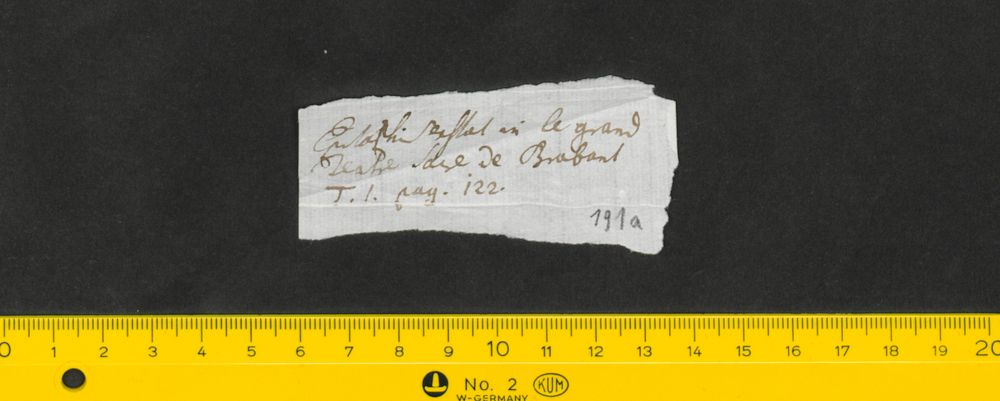 in le grand
Teatre Sacré de Brabant
T. 1. pag. 122.
191a
0 1 2 3 4 5 6 7 8 9 10 11 12 13 14 15 16 17 18 19 20
No. 2 KUM
W-GERMANY